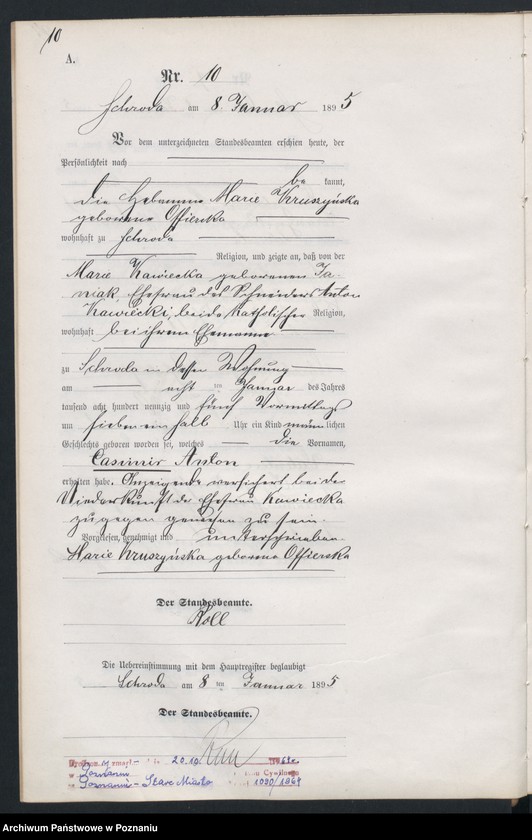 10
A.
Nr. 10
Schroda am 8. Januar 1895
Vor dem unterzeichneten Standesbeamten erschien heute, der
Persönlichkeit nach
be kannt,
die Hebamme Marie Kruszyńska
geborene Offierska
wohnhaft zu Schroda
Religion, und zeigte an, daß von der
Marie Kawiecka geborenen Ja-
niak, Ehefrau des Schneiders Anton
Kawiecki, beide katholischer Religion,
wohnhaft bei ihrem Ehemanne
zu Schroda in dessen Wohnung
am acht ten Januar des Jahres
tausend acht hundert neunzig und fünf Vormittags
um sieben ein halb Uhr ein Kind männlichen
Geschlechts geboren worden sei, welches die Vornamen,
Casimir Anton
erhalten habe. Anzeigende versichert bei der
Niederkunft der Ehefrau Kawiecka
zugegen gewesen zu sein.
Vorgelesen, genehmigt und unterschrieben
Marie Kruszyńska geborene Offierska
Der Standesbeamte.
Roll
Die Uebereinstimmung mit dem Hauptregister beglaubigt
Schroda am 8 ten Januar 1895
Der Standesbeamte.
zmarł 20.10. 1961 r.
Poznaniu Cywilnego
Poznaniu - Stare Miasto 1090/1961
Archiwum Państwowe w Poznaniu